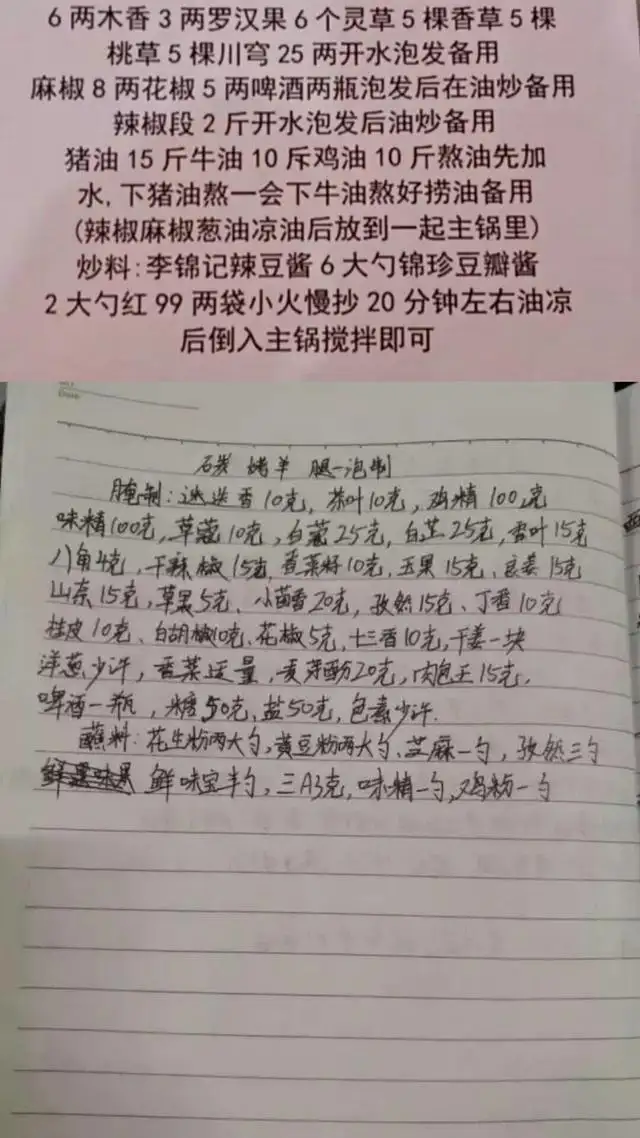 6两木香3两罗汉果6个灵草5棵香草5棵
桃草5棵川穹25两开水泡发备用
麻椒8两花椒5两啤酒两瓶泡发后在油炒备用
辣椒段2斤开水泡发后油炒备用
猪油15斤牛油10斥鸡油10斤熬油先加
水,下猪油熬一会下牛油熬好捞油备用
(辣椒麻椒葱油凉油后放到一起主锅里)
炒料:李锦记辣豆酱6大勺锦珍豆瓣酱
2大勺红99两袋小火慢抄20分钟左右油凉
后倒入主锅搅拌即可
Date
碳烤羊腿一泡制
腌制:迷迭香10克,茶叶10克,鸡精100克
味精100克,草蔻10克,白蔻25克,白芷25克,香叶15克
八角4克,干辣椒15克,香菜籽10克,玉果15克、良姜15克
山奈15克,草果5克、小茴香20克,孜然15克、丁香10克
桂皮10克、白胡椒10克、花椒5克,十三香10克,干姜一块
洋葱少许,香菜适量,麦芽酚20克,肉包王15克,
啤酒一瓶,糖50克,盐50克,包素少许.
蘸料:花生粉两大勺,黄豆粉两大勺、芝麻一勺,孜然三勺
鲜味宝半勺,三A3克,味精一勺,鸡粉一勺